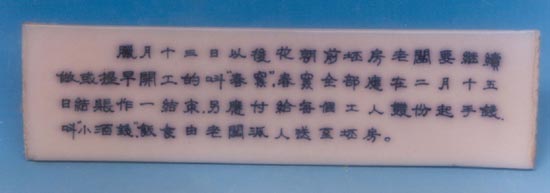 臘月十三日以後花朝前坯房老闆要繼續
做或提早開工的叫"春窯",春窯全部應在二月十五
日結賬作一結束,另應付給每個工人雙份起手錢,
叫"小酒錢",飯食由老闆派人送至坯房。